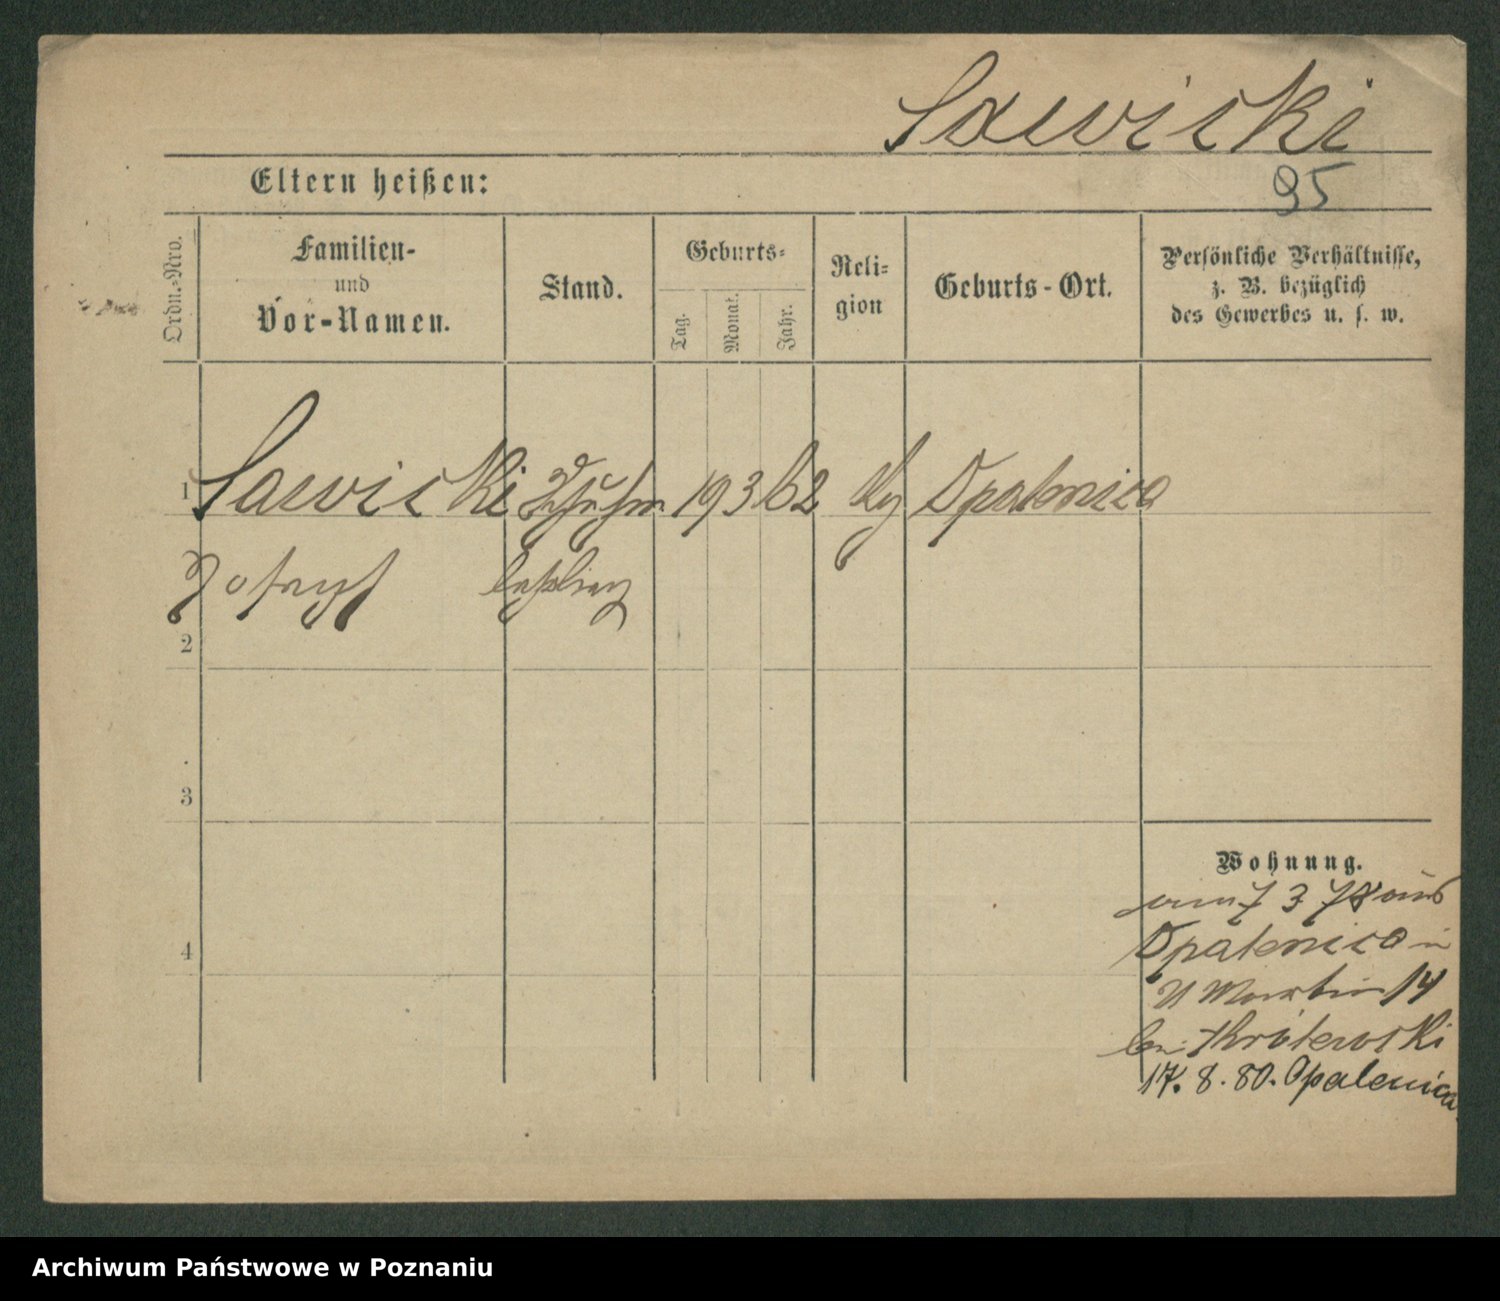 Sawicki
95
Eltern heißen:
Ordn.-Nro.
Familien-
und
Vor-Namen.
Stand.
Geburts-
Tag.
Monat.
Jahr.
Reli-
gion
Geburts-Ort.
Persönliche Verhältnisse,
z. B. bezüglich
des Gewerbes u. s. w.
1 Sawicki 19 3 62 Opalenica
Joseph
2
3
4
Wohnung.
7 3 78 aus
Opalenica in
Martin 14
bei Królewski
17. 8. 80. Opalenica
Archiwum Państwowe w Poznaniu